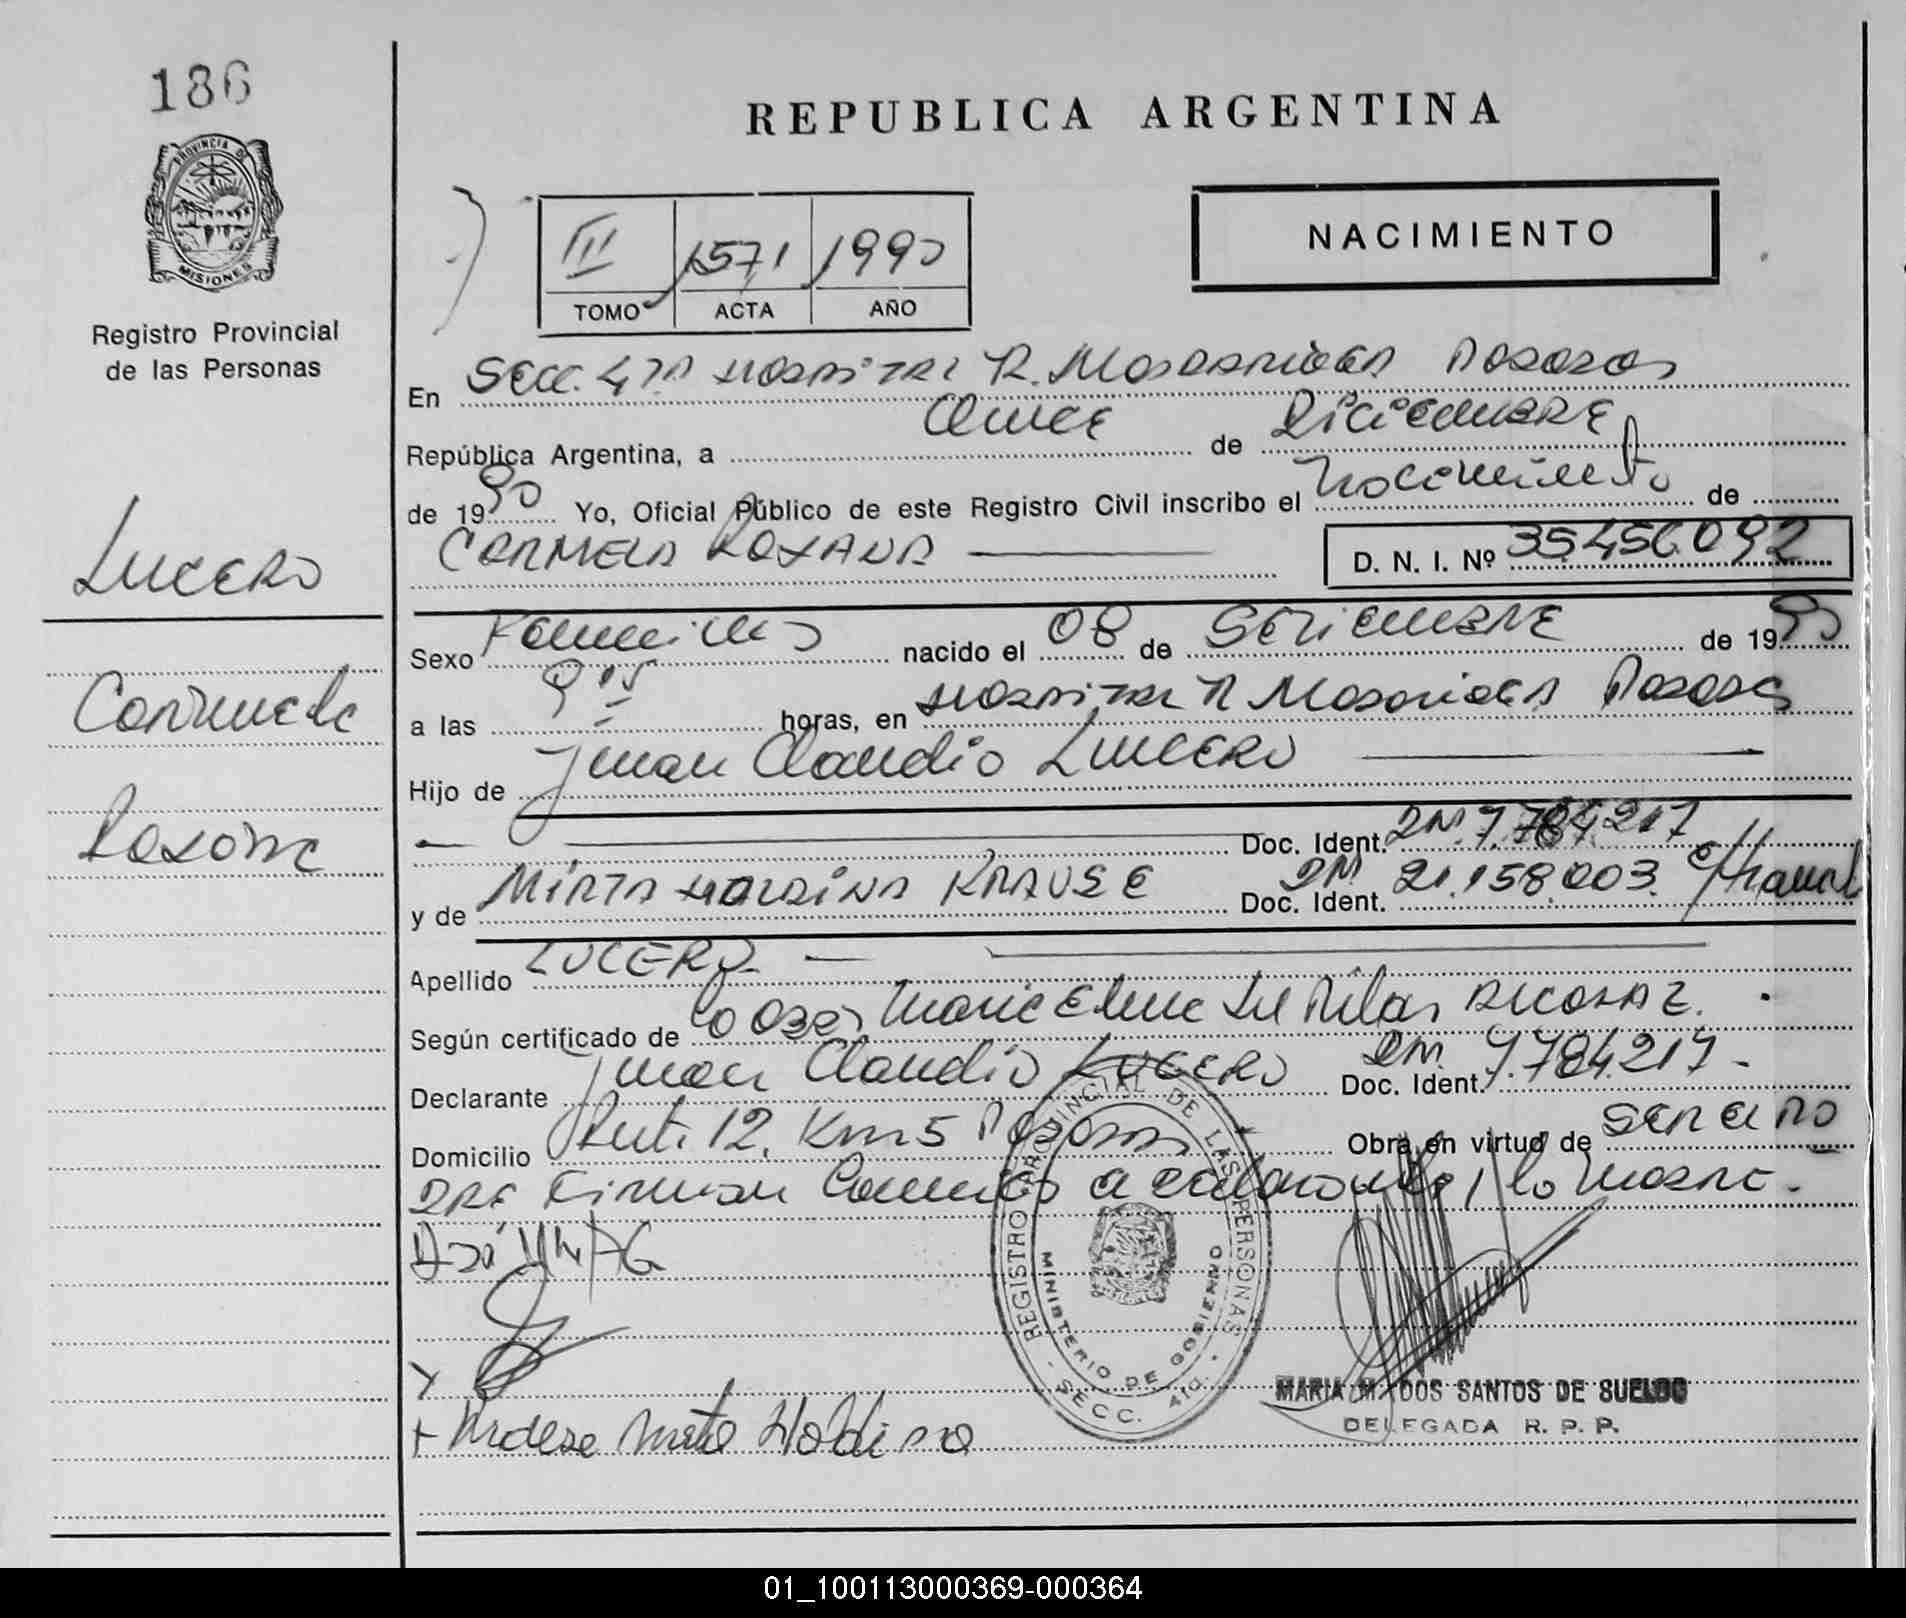 186
REPUBLICA ARGENTINA
PROVINCIA DE
MISIONES
Registro Provincial
de las Personas
III 1571 1990
TOMO ACTA AÑO
NACIMIENTO
En Secc. 4ta Hospital R. Madariaga Posadas
República Argentina, a Once de Diciembre
de 1990 Yo, Oficial Público de este Registro Civil inscribo el Nacimiento de
CARMELA ROXANA D. N. I. Nº 35456092
LUCERO
Carmela
Roxana
Sexo Femenino nacido el 08 de SETIEMBRE de 1990
a las 9 15 horas, en Hospital R Madariaga Posadas
Hijo de Juan Claudio LUCERO
Doc. Ident. DM 7.784.217
y de MIRTA HOLDINA KRAUSE Doc. Ident. DM 21.158.003.
Apellido LUCERO
Según certificado de Maria Elena Del Pilar
Declarante Juan Claudio LUCERO Doc. Ident. DM 7.784.217
Domicilio Ruta 12, Km 5 Posadas Obra en virtud de
Firman la madre
REGISTRO PROVINCIAL DE LAS PERSONAS
MINISTERIO DE GOBIERNO
SECC. 4ta.
MARIA M. DOS SANTOS DE SUELDO
DELEGADA R. P. P.
+ Krause Mirta Holdina
01_100113000369-000364